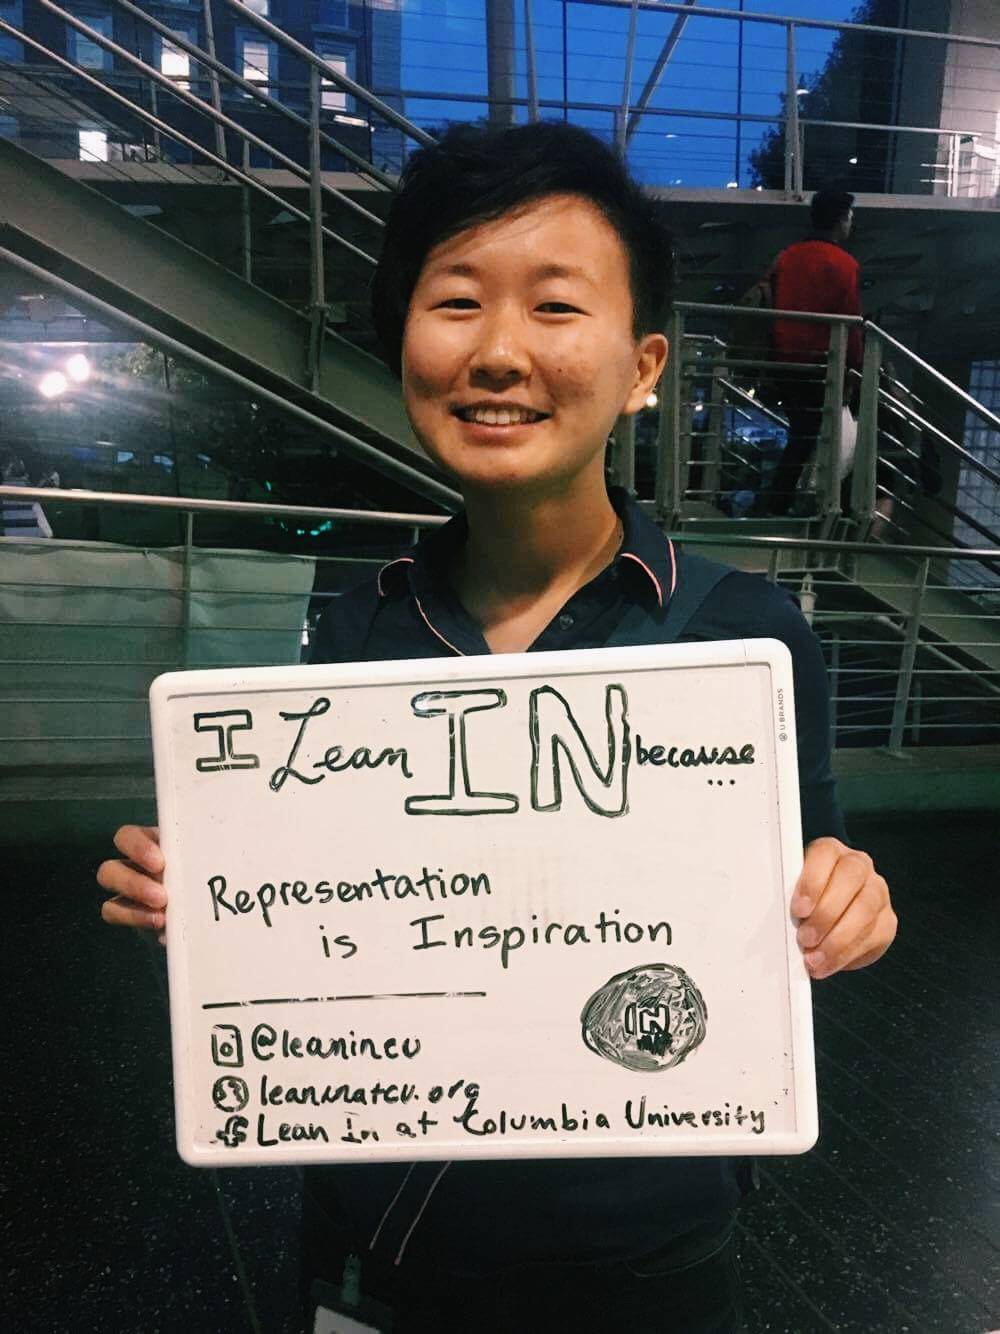 I Lean IN because
...
Representation
is Inspiration
IN
@leanincu
leaninatcu.org
Lean In at Columbia University
U BRANDS